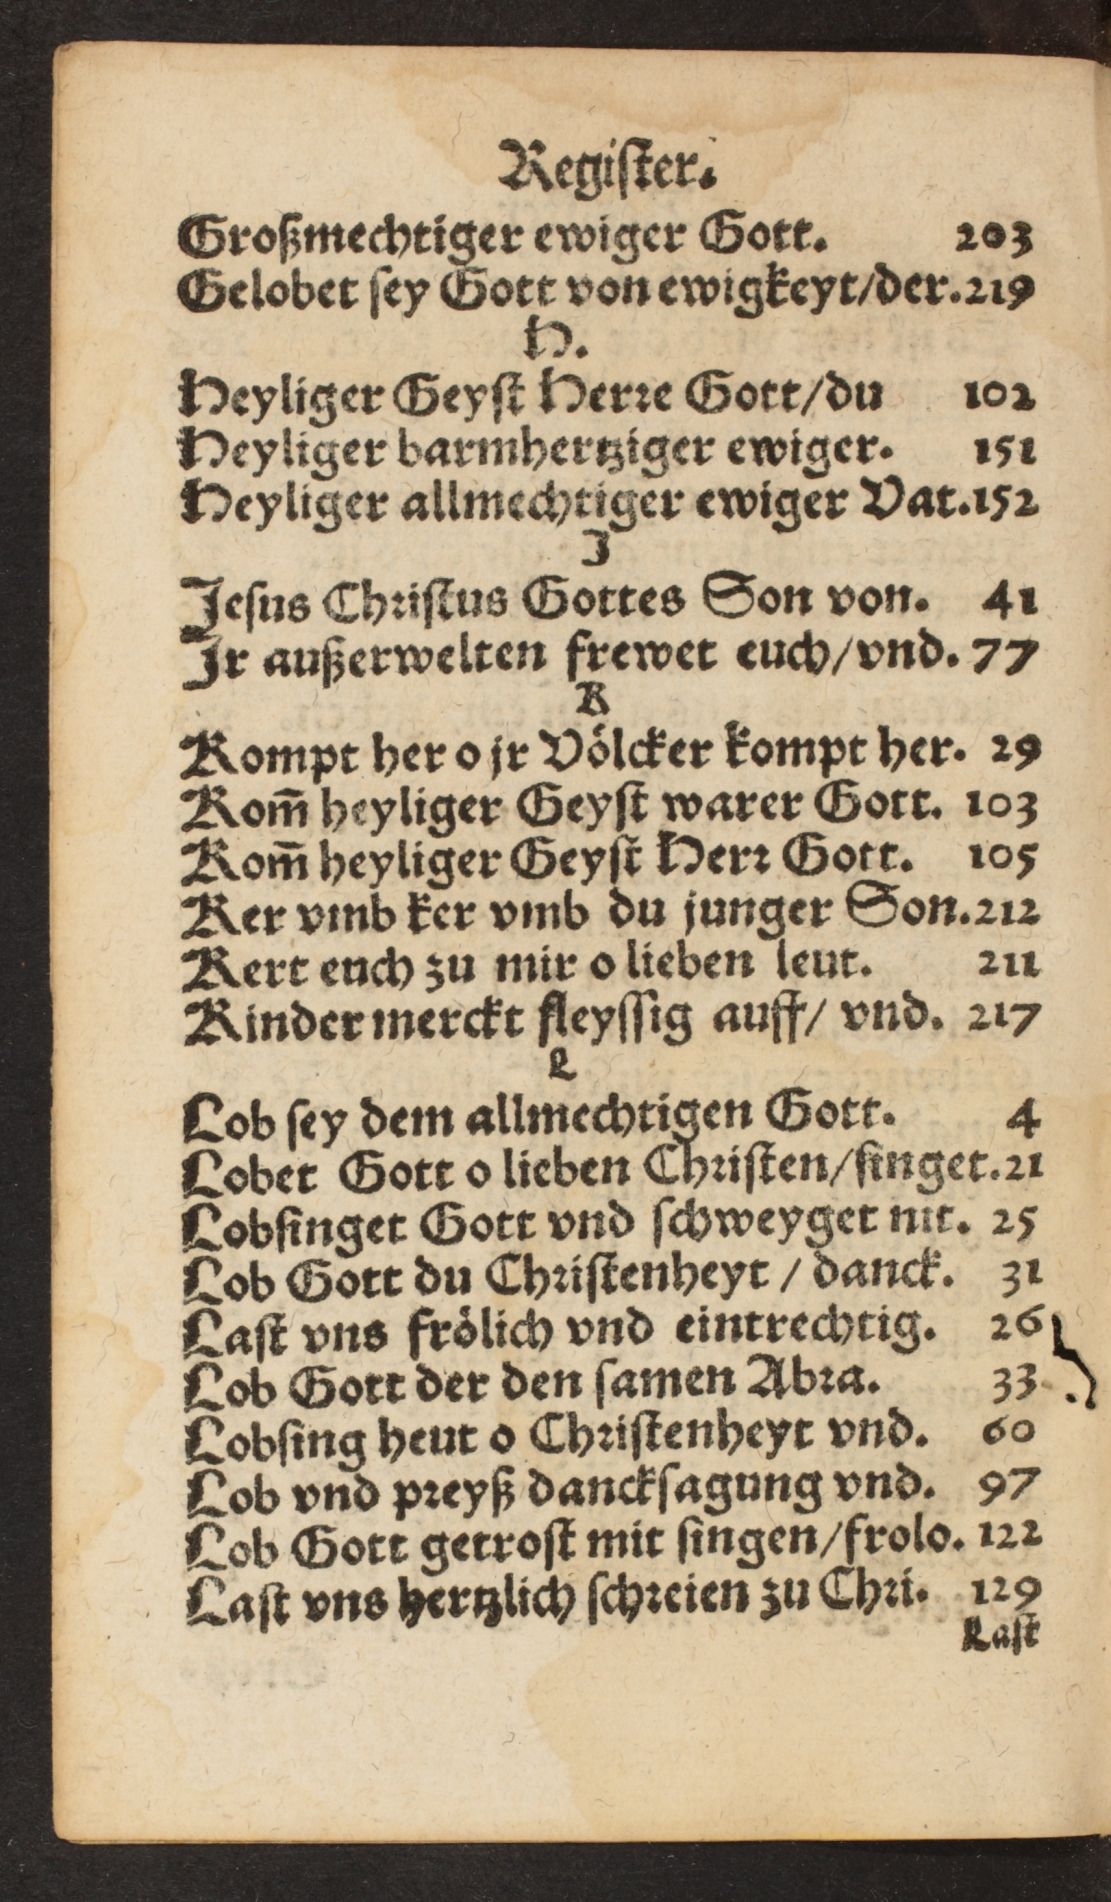 Register.
Großmechtiger ewiger Gott. 203
Gelobet sey Gott von ewigkeyt/der. 219
H.
Heyliger Geyst Herre Gott/du 102
Heyliger barmhertziger ewiger. 151
Heyliger allmechtiger ewiger Vat. 152
J
Jesus Christus Gottes Son von. 41
Jr außerwelten frewet euch/vnd. 77
K
Kompt her o jr Völcker kompt her. 29
Kom̃ heyliger Geyst warer Gott. 103
Kom̃ heyliger Geyst Herr Gott. 105
Ker vmb ker vmb du junger Son. 212
Kert euch zu mir o lieben leut. 211
Kinder merckt fleyssig auff/ vnd. 217
L
Lob sey dem allmechtigen Gott. 4
Lobet Gott o lieben Christen/singet. 21
Lobsinget Gott vnd schweyget nit. 25
Lob Gott du Christenheyt / danck. 31
Last vns frölich vnd eintrechtig. 26
Lob Gott der den samen Abra. 33
Lobsing heut o Christenheyt vnd. 60
Lob vnd preyß dancksagung vnd. 97
Lob Gott getrost mit singen/frolo. 122
Last vns hertzlich schreien zu Chri. 129
Last